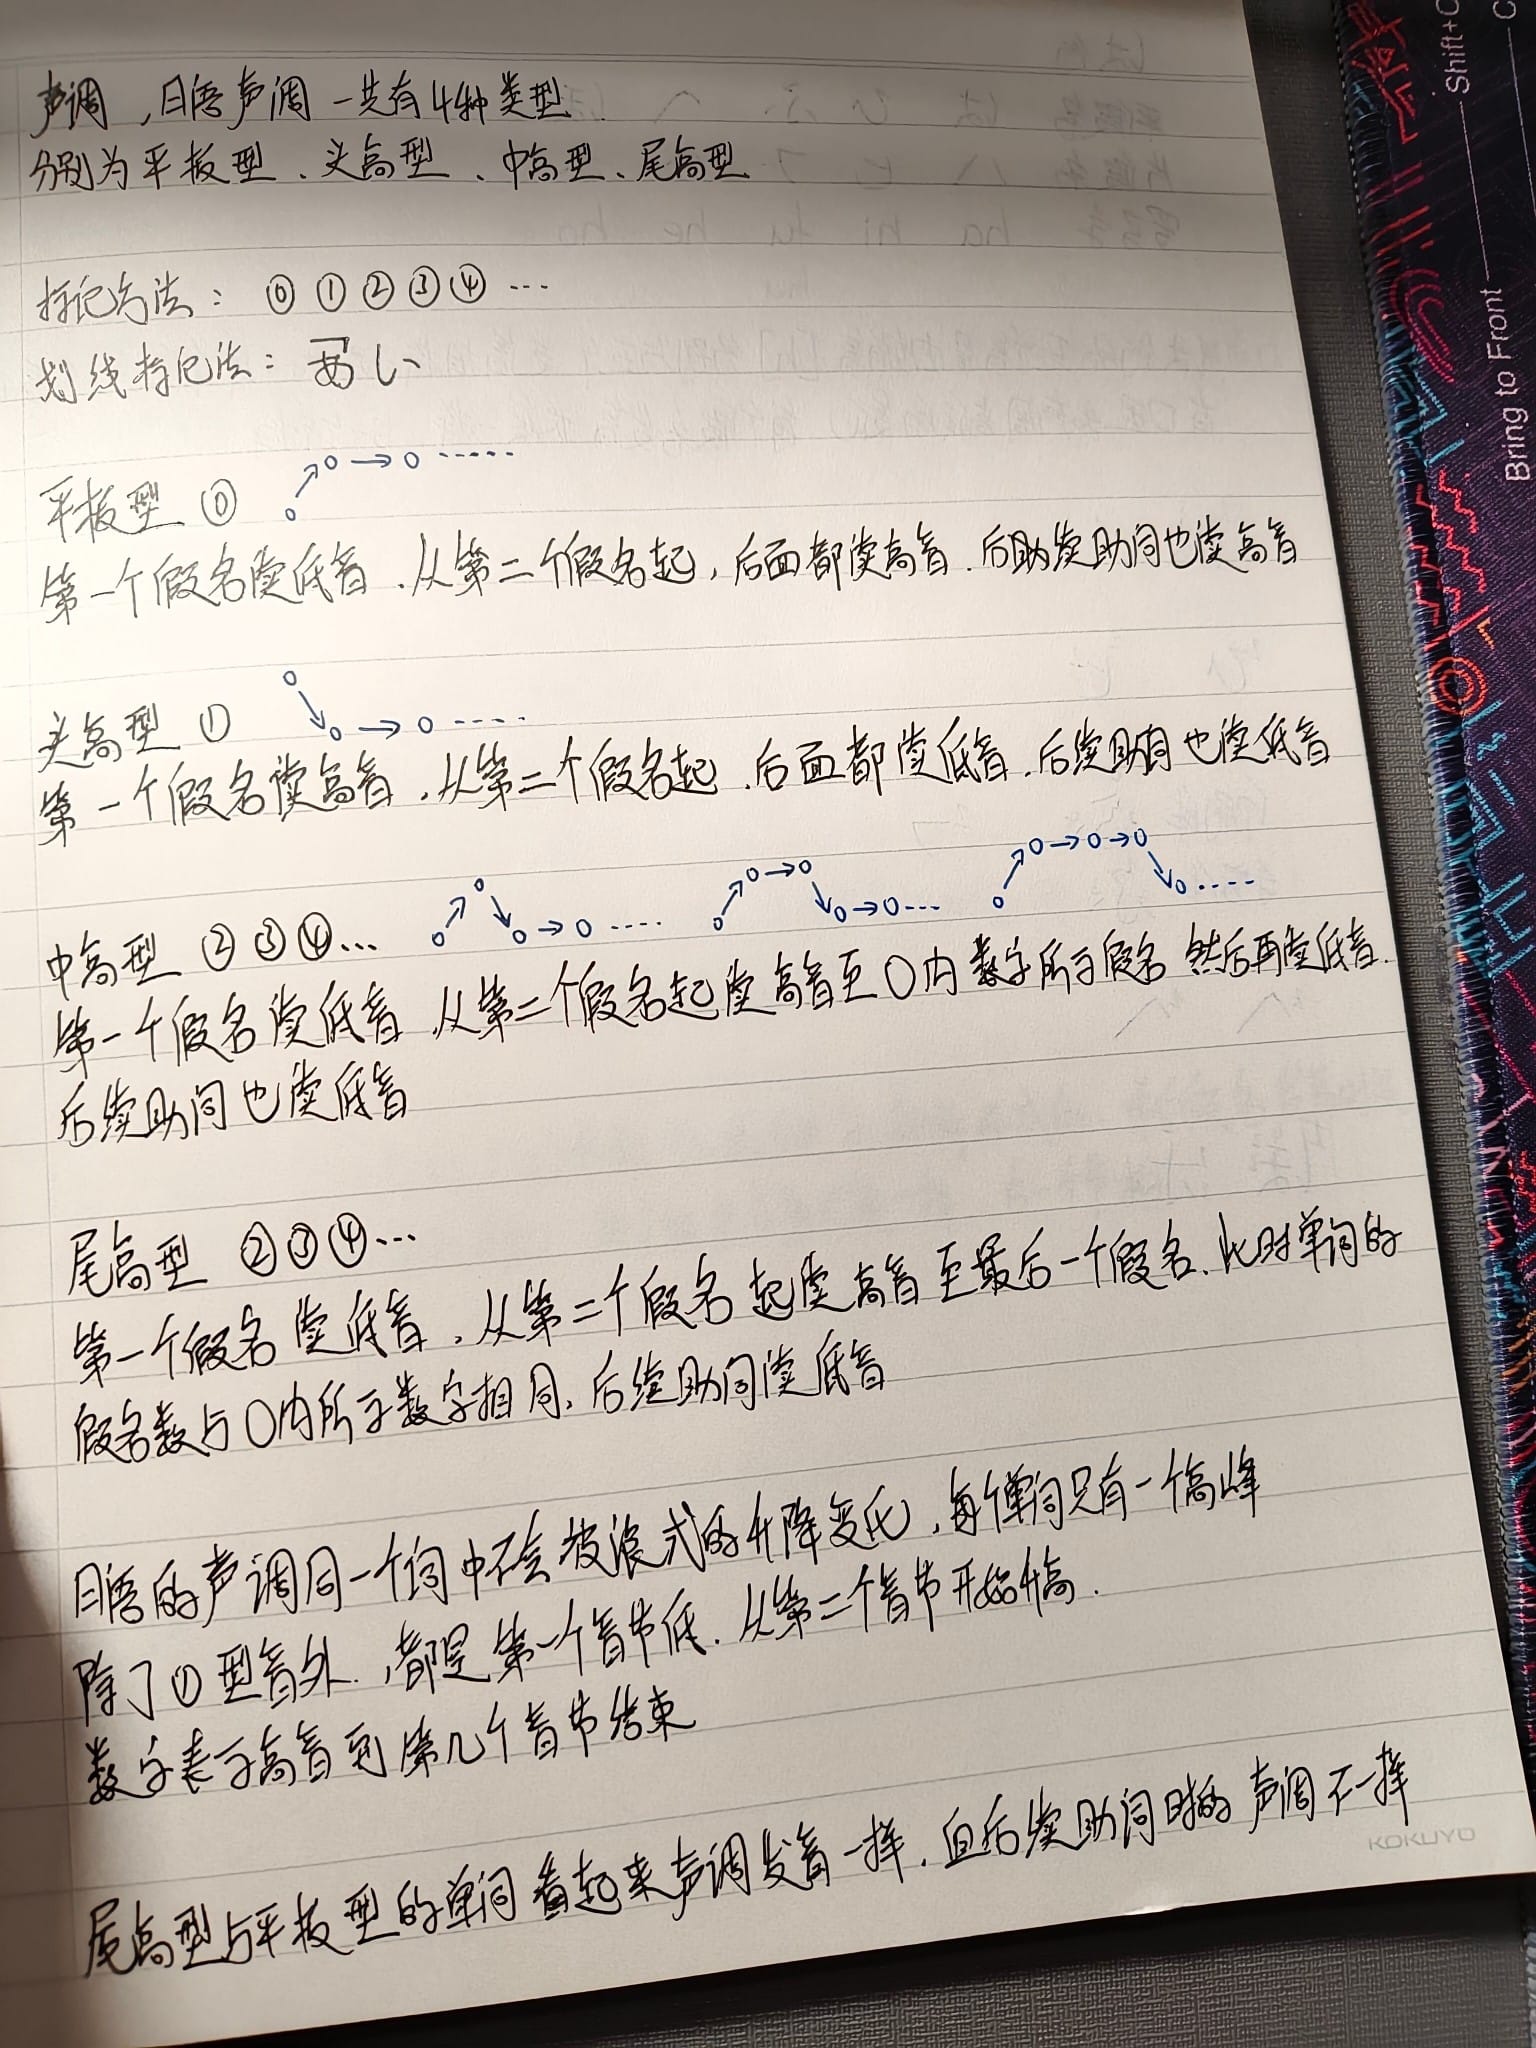 声调,日语声调一共有4种类型
分别为平板型、头高型、中高型、尾高型
标记方法: ⓪ ① ② ③ ④ …
划线标记法: あい
平板型 ⓪
第一个假名读低音.从第二个假名起,后面都读高音.后助续助词也读高音
头高型 ①
第一个假名读高音.从第二个假名起.后面都读低音.后续助词也读低音
中高型 ② ③ ④…
第一个假名读低音.从第二个假名起读高音至〇内数字所示假名 然后再读低音.
后续助词也读低音
尾高型 ②③④…
第一个假名读低音.从第二个假名起读高音至最后一个假名.此时单词的
假名数与〇内所示数字相同.后续助词读低音
日语的声调同一个词中不会波浪式的升降变化,每个单词只有一个高峰
除了①型音外.,都是第一个音节低.从第二个音节开始升高.
数字表示高音到第几个音节结束
尾高型与平板型的单词看起来声调发音一样.但后续助词时的声调不一样
KOKUYO
Shift+C
Bring to Front